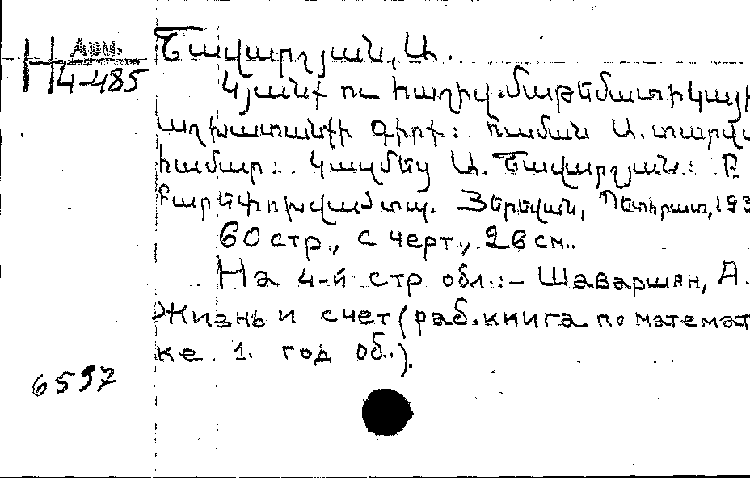 Арм.
Н 4-485
Շավարշյան, Ա.
Կյանք ու հաշիվ. մաթեմատիկայի
աշխատանքի գիրք: ... Ա. տարվա
համար: Կազմեց Ա. Շավարշյան: Բ
բարեփոխված տպ. Յերեվան, Պետհրատ, 193
60 стр., с черт., 26 см.
На 4-й стр. обл.:- Шаваршян, А.
Жизнь и счет (раб. книга по математ
ке. 1. год об.).
6597